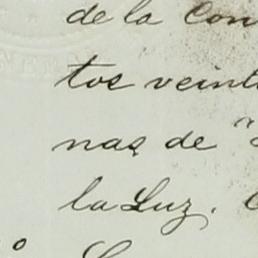 de la Con
tos veint
nas de "
la Luz.